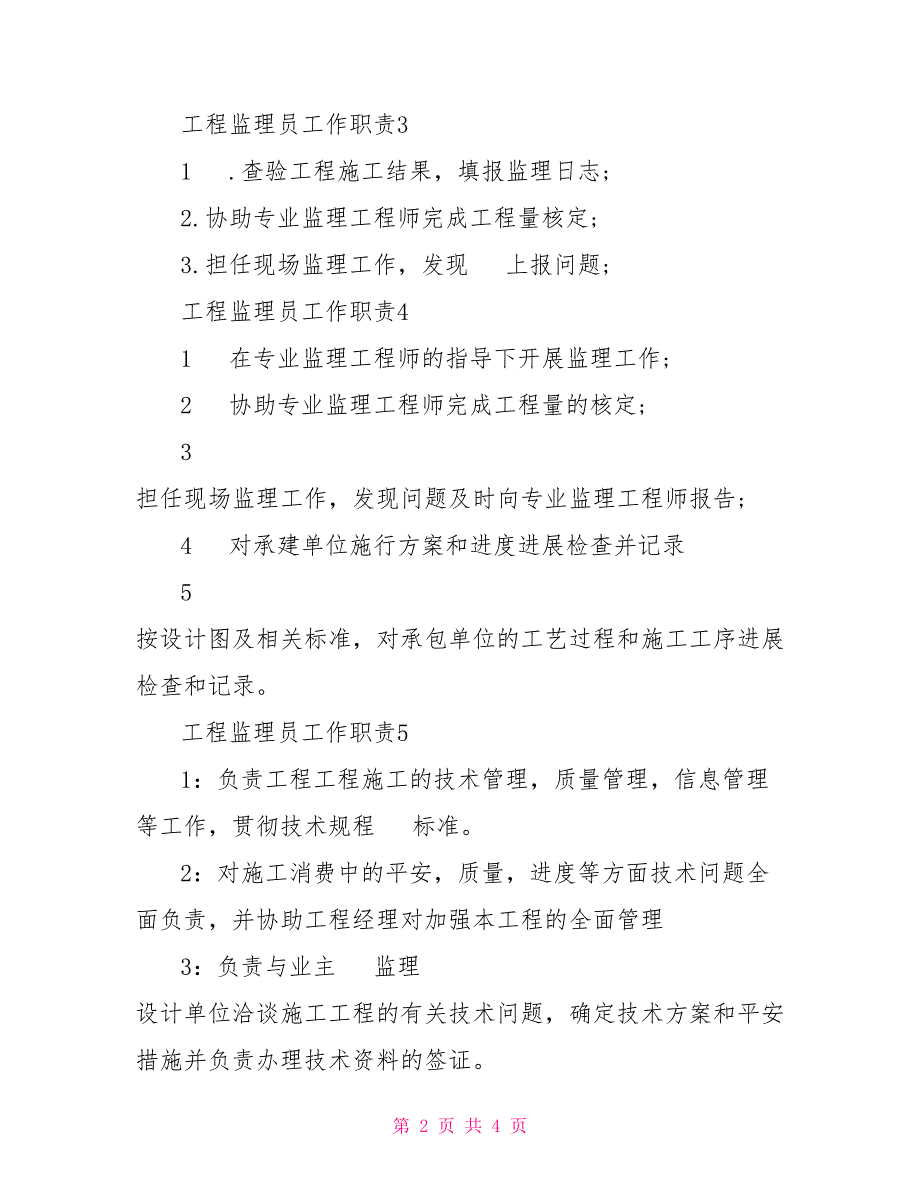 工程监理员工作职责3
1 .查验工程施工结果，填报监理日志;
2.协助专业监理工程师完成工程量核定;
3.担任现场监理工作，发现 上报问题;
工程监理员工作职责4
1 在专业监理工程师的指导下开展监理工作;
2 协助专业监理工程师完成工程量的核定;
3
担任现场监理工作，发现问题及时向专业监理工程师报告;
4 对承建单位施行方案和进度进展检查并记录
5
按设计图及相关标准，对承包单位的工艺过程和施工工序进展
检查和记录。
工程监理员工作职责5
1：负责工程工程施工的技术管理，质量管理，信息管理
等工作，贯彻技术规程 标准。
2：对施工消费中的平安，质量，进度等方面技术问题全
面负责，并协助工程经理对加强本工程的全面管理
3：负责与业主 监理
设计单位洽谈施工工程的有关技术问题，确定技术方案和平安
措施并负责办理技术资料的签证。
第 2 页 共 4 页